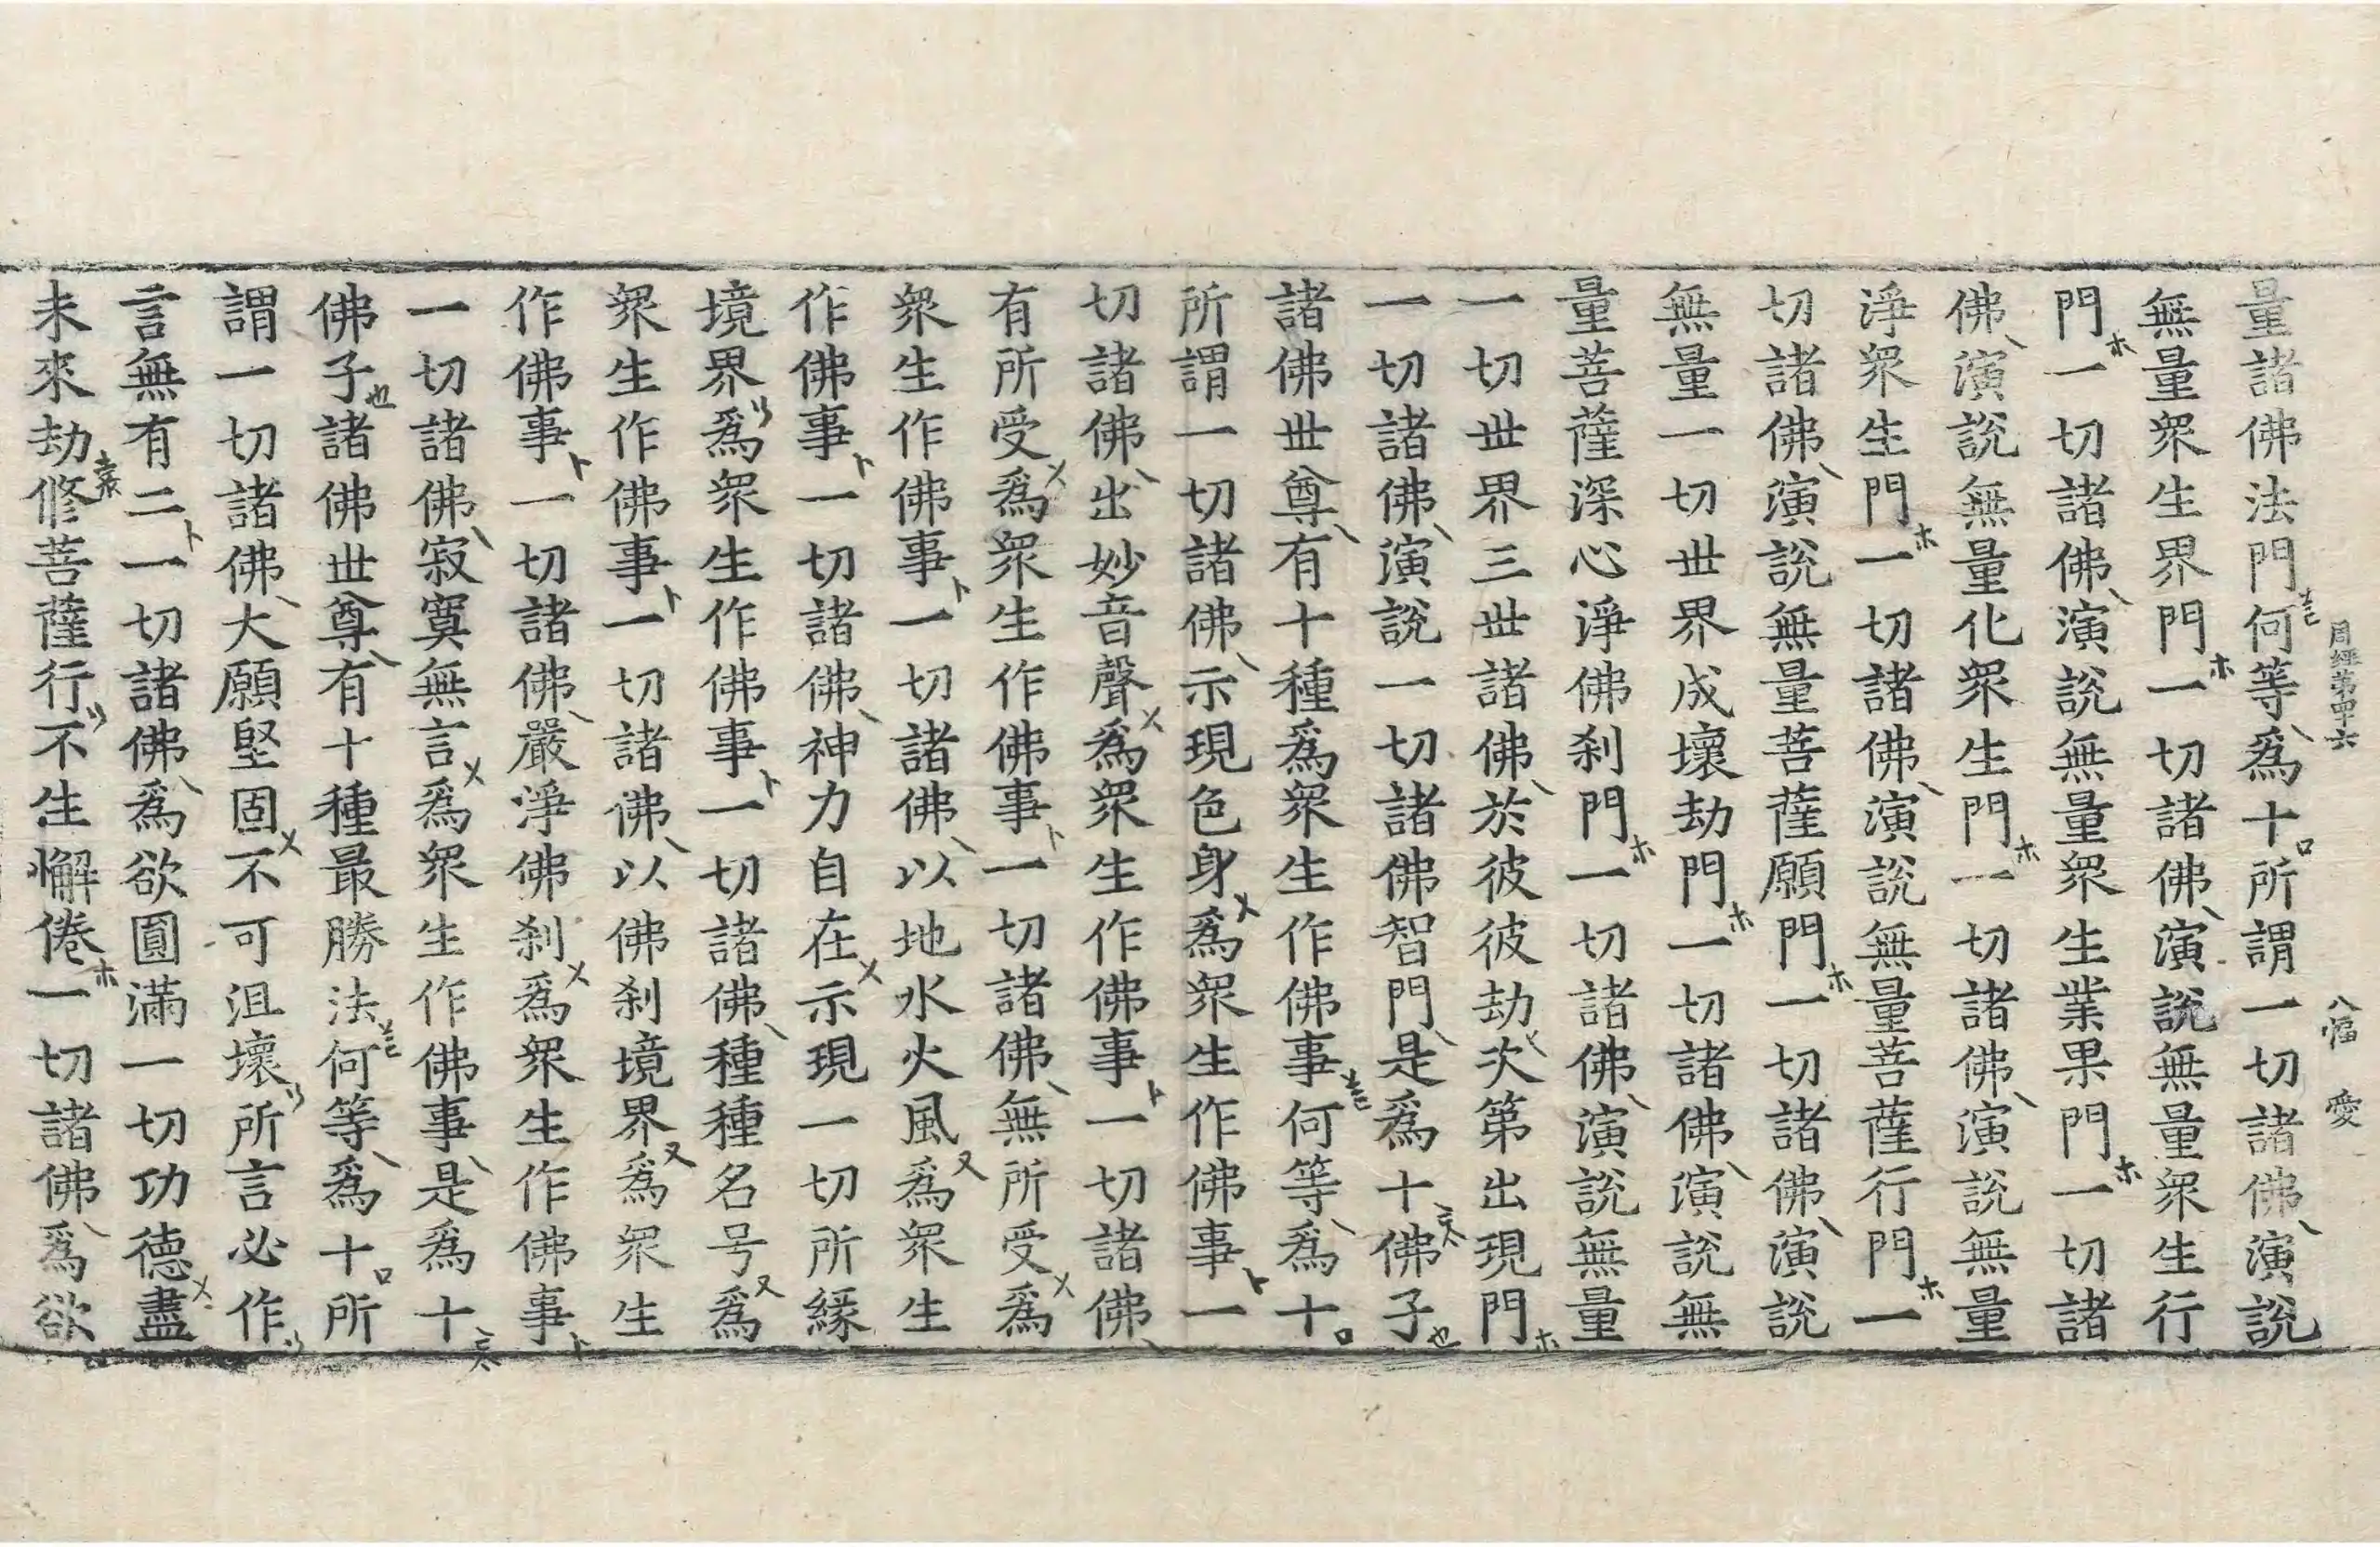 周經第四十六 八幅 愛
量諸佛法門何等為十所謂一切諸佛演說
無量眾生界門一切諸佛演說無量眾生行
門一切諸佛演說無量眾生業果門一切諸
佛演說無量化眾生門一切諸佛演說無量
淨眾生門一切諸佛演說無量菩薩行門一
切諸佛演說無量菩薩願門一切諸佛演說
無量一切世界成壞劫門一切諸佛演說無
量菩薩深心淨佛刹門一切諸佛演說無量
一切世界三世諸佛於彼彼劫次第出現門
一切諸佛演說一切諸佛智門是為十佛子
諸佛世尊有十種為眾生作佛事何等為十
所謂一切諸佛示現色身為眾生作佛事一
切諸佛出妙音聲為眾生作佛事一切諸佛
有所受為眾生作佛事一切諸佛無所受為
眾生作佛事一切諸佛以地水火風為眾生
作佛事一切諸佛神力自在示現一切所緣
境界為眾生作佛事一切諸佛種種名号為
眾生作佛事一切諸佛以佛刹境界為眾生
作佛事一切諸佛嚴淨佛刹為眾生作佛事
一切諸佛寂寞無言為眾生作佛事是為十
佛子諸佛世尊有十種最勝法何等為十所
謂一切諸佛大願堅固不可沮壞所言必作
言無有二一切諸佛為欲圓滿一切功德盡
未來劫修菩薩行不生懈倦一切諸佛為欲